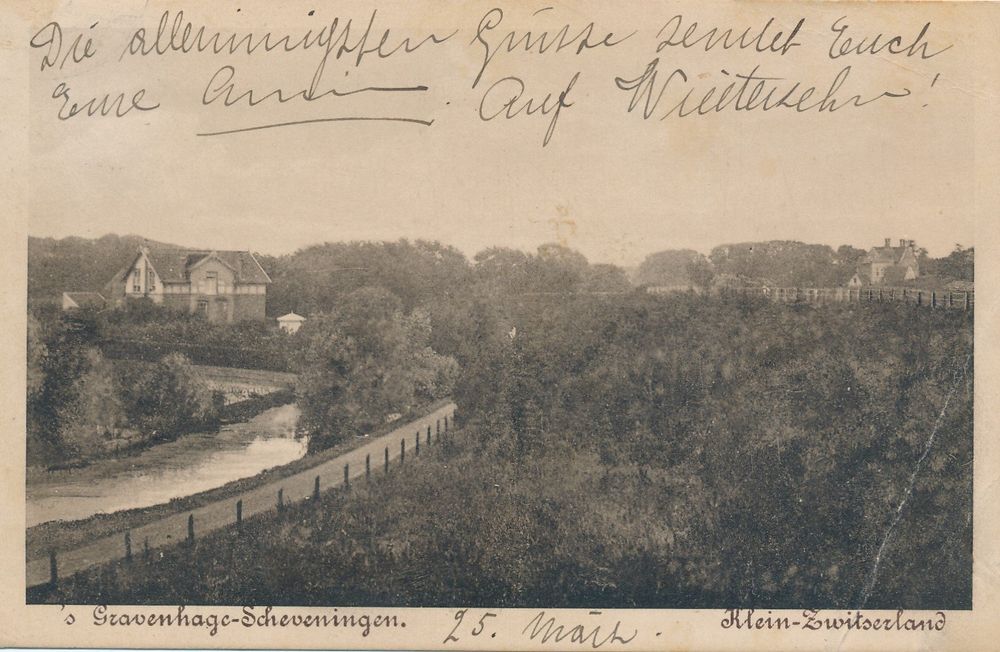 Die allerinnigsten Grüsse sendet Euch
Eure Anni. Auf Wiedersehn!
's Gravenhage-Scheveningen. 25. März. Klein-Zwitserland